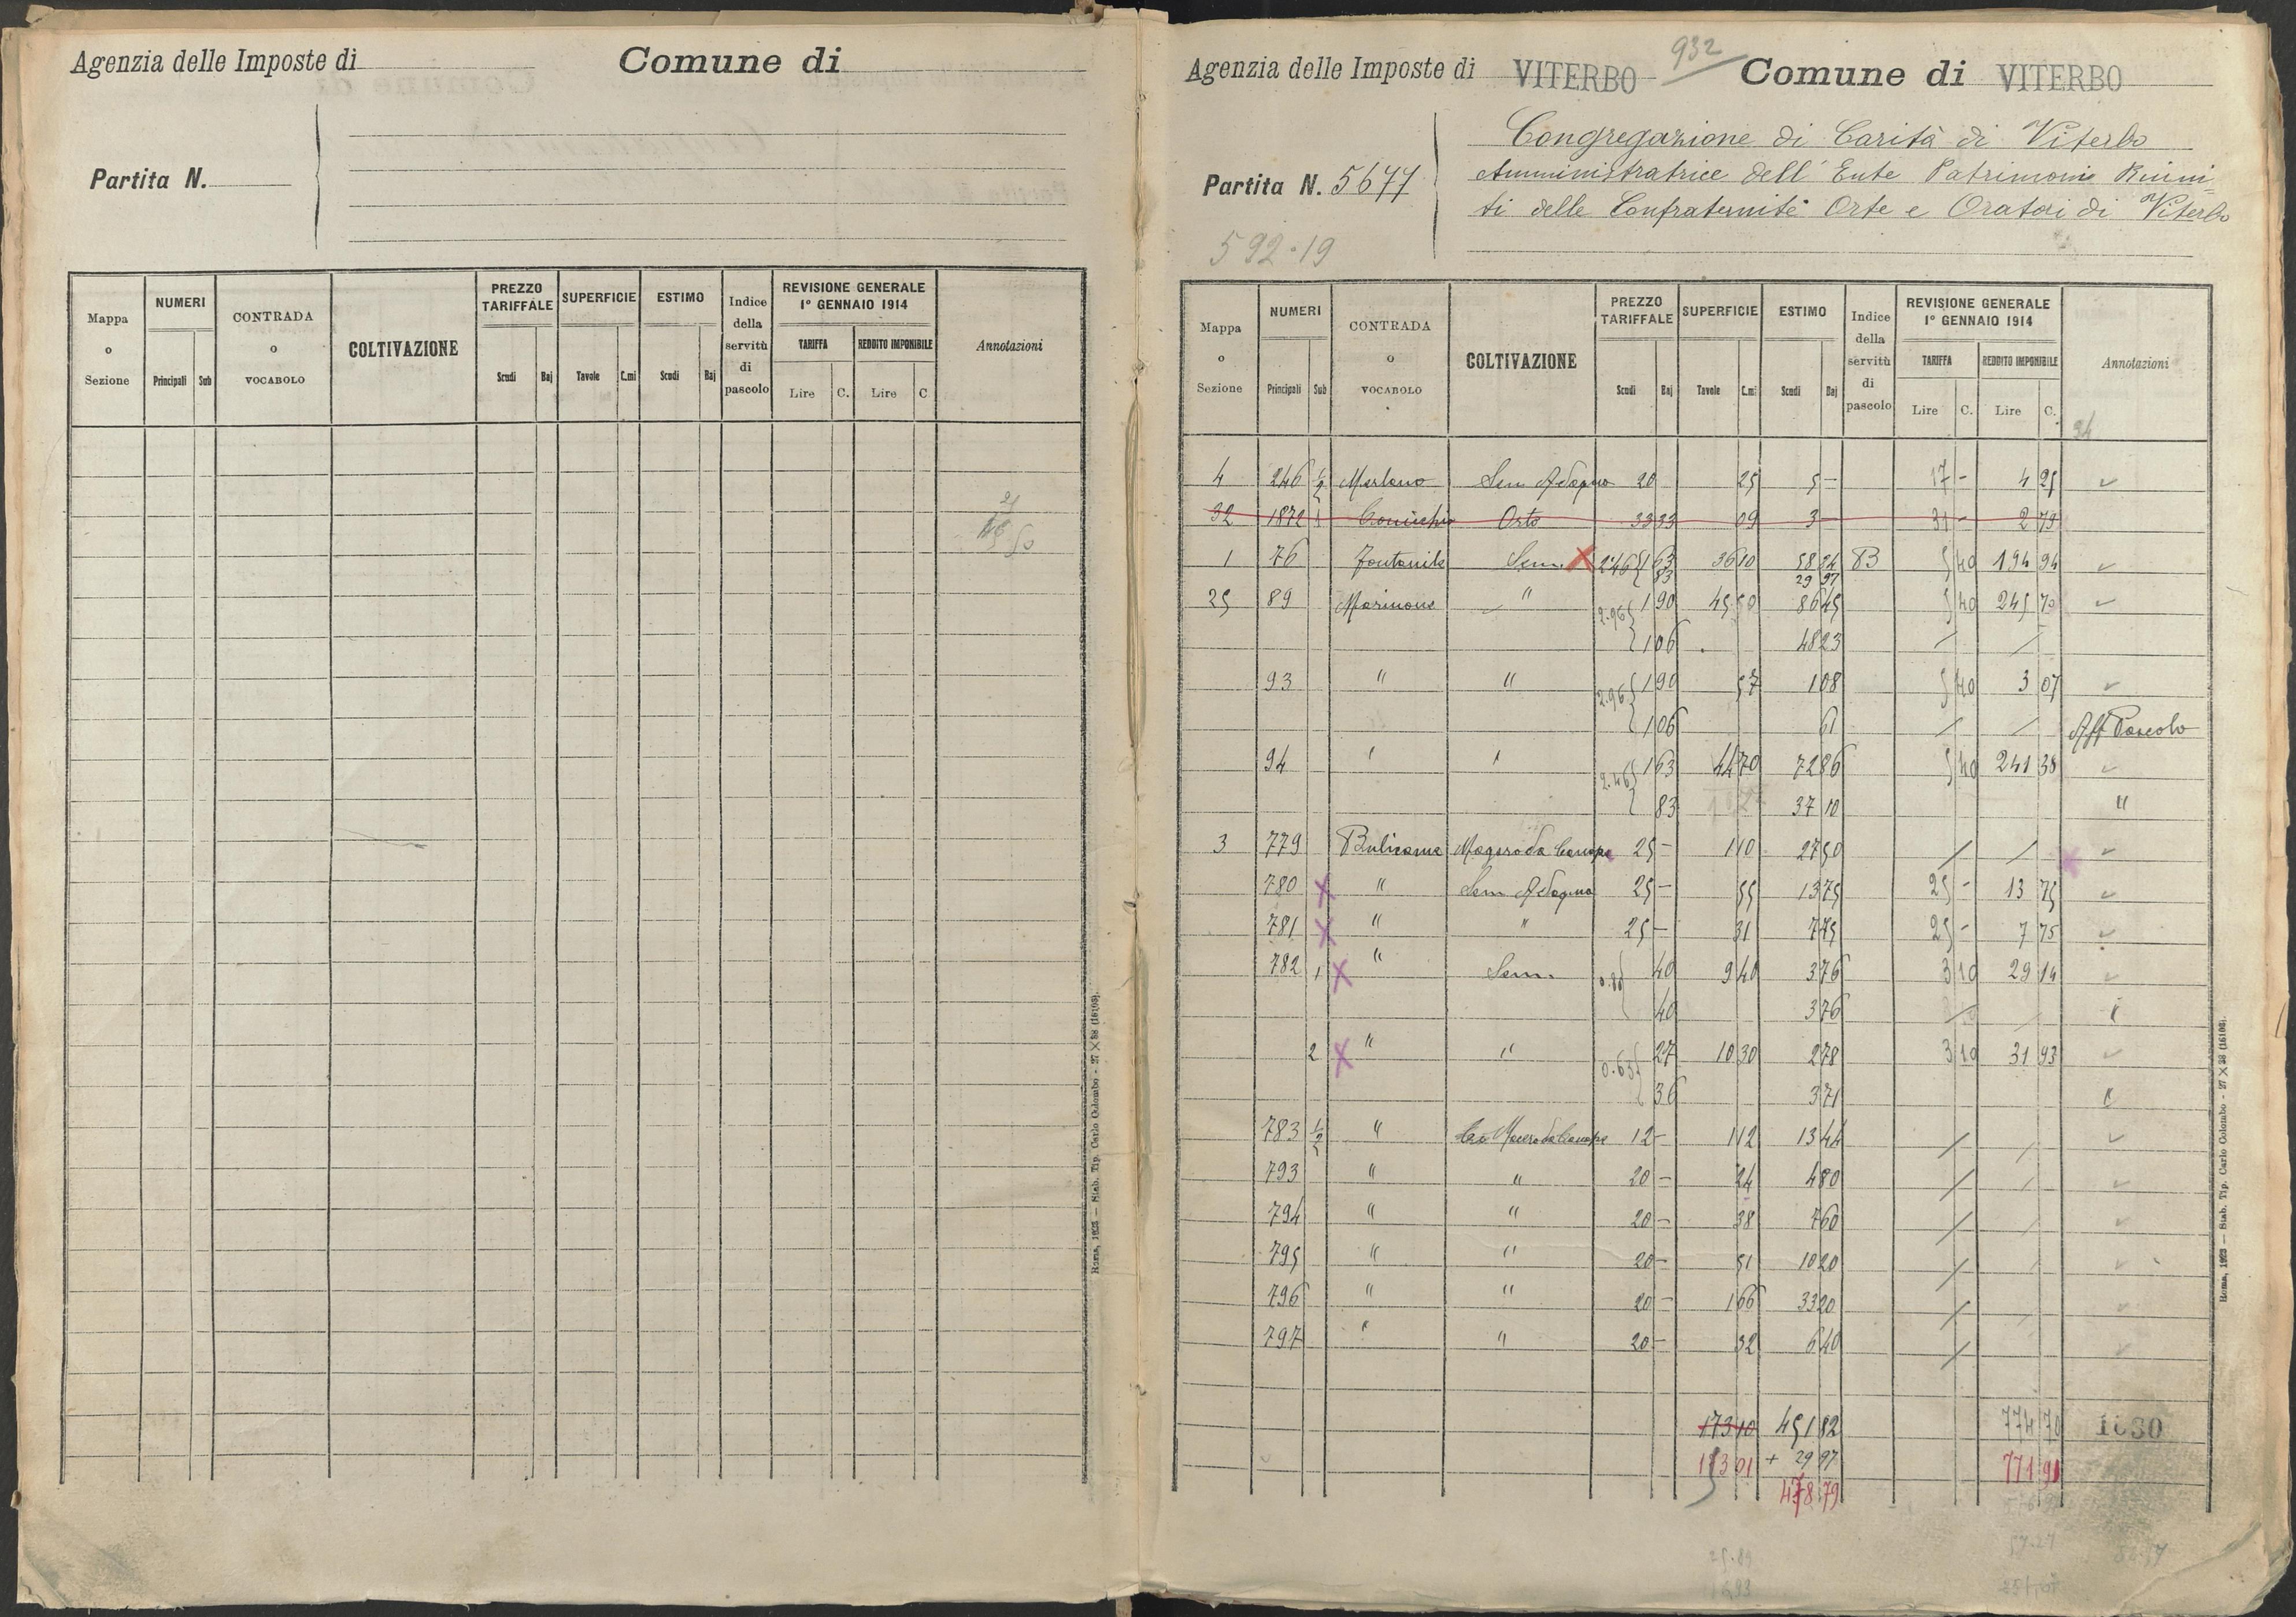 Agenzia delle Imposte di
Comune di
Partita N.
Mappa o Sezione
NUMERI
Principali Sub
CONTRADA o VOCABOLO
COLTIVAZIONE
PREZZO TARIFFALE
Scudi Baj
SUPERFICIE
Tavole C.mi
ESTIMO
Scudi Baj
Indice della servitù di pascolo
REVISIONE GENERALE
1° GENNAIO 1914
TARIFFA
Lire C.
REDDITO IMPONIBILE
Lire C
Annotazioni
Roma, 1923 — Stab. Tip. Carlo Colombo - 27 X 38 (16108).
932
Agenzia delle Imposte di VITERBO
Comune di VITERBO
Partita N. 5677
Congregazione di Carità di Viterbo
Amministratrice dell' Ente Patrimonio Riuni=
ti delle Confraternite Orte e Oratori di Viterbo
592.19
Mappa o Sezione
NUMERI
Principali Sub
CONTRADA o VOCABOLO
COLTIVAZIONE
PREZZO TARIFFALE
Scudi Baj
SUPERFICIE
Tavole C.mi
ESTIMO
Scudi Baj
Indice della servitù di pascolo
REVISIONE GENERALE
1° GENNAIO 1914
TARIFFA
Lire C.
REDDITO IMPONIBILE
Lire C.
Annotazioni
4 246 1/2 Merlano Sem Adaqua 20 25 5 — 17 — 4 25
32 1872 1 Orto 33 33 09 3 — 31 — 2 79
1 76 Fontanile Sem. 2.46 1 63 36 10 58 84 B 5 40 194 94
83 29 97
25 89 Marinone " 2.96 1 90 45 50 86 45 5 40 245 70
1 06 48 23
93 " " 2.96 1 90 57 1 08 5 40 3 07
1 06 61 Aff Pascolo
94 " " 2.46 1 63 44 70 72 86 5 40 241 38
83 37 10 "
3 779 Bulicame 25 — 1 10 27 50
780 " Sem Adaqua 25 — 55 13 75 25 — 13 75
781 " " 25 — 31 7 75 25 — 7 75
782 1 " Sem. 0.80 40 9 40 3 76 3 10 29 14
40 3 76 "
2 " " 0.63 27 10 30 2 78 3 10 31 93
36 3 71 "
783 1/2 " 12 — 1 12 13 44
793 " " 20 — 24 4 80
794 " " 20 — 38 7 60
795 " " 20 — 51 10 20
796 " " 20 — 1 66 33 20
797 " " 20 — 32 6 40
173 10 451 82 774 70 1030
153 01 + 29 97 771 91
478 79
Roma, 1923 — Stab. Tip. Carlo Colombo - 27 X 38 (16108).